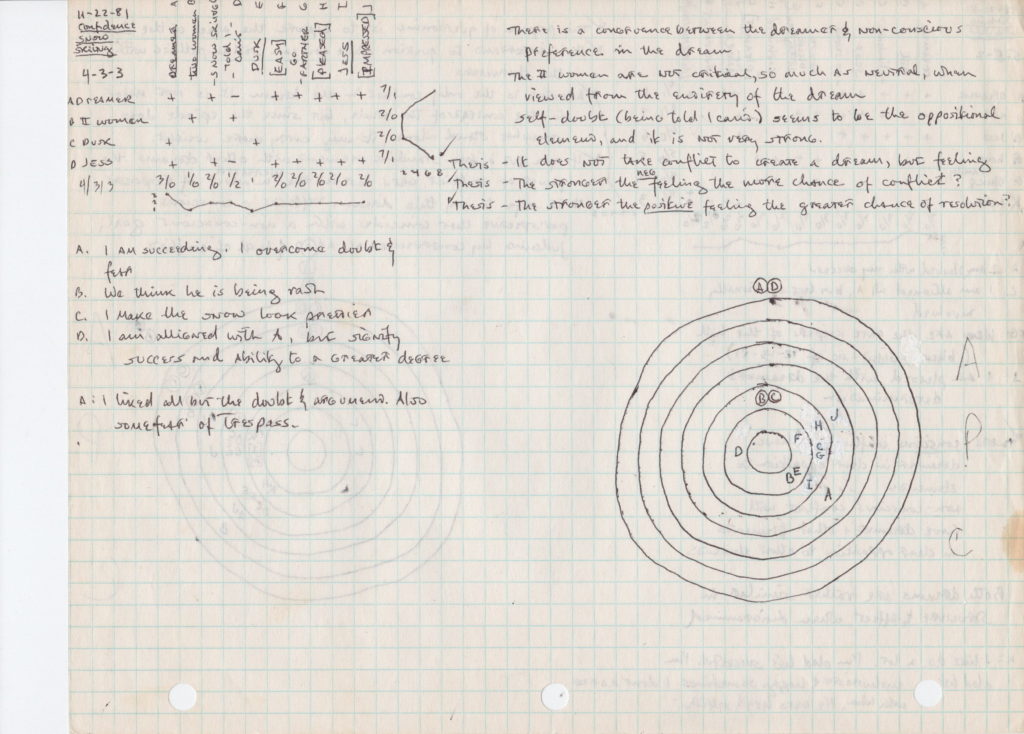 11-22-81
Confidence
Snow
Skiing
4-3-3
Dreamer A
Two women B
- Snow Skiing
- Told I - Can't D
Dusk E
[Easy] F
Go Farther G
[Pleased] H
Jess I
[Impressed]
A Dreamer + + - + + + + + 7/1
B II women + + 2/0
C Dusk + + 2/0
D Jess + + - + + + + + 7/1
4/3/3 3/0 1/0 2/0 1/2 2/0 2/0 2/0 2/0 2/0
2 4 6 8
There is a congruence between the dreamer & non-conscious
preference in the dream
The II women are not critical, so much as neutral, when
viewed from the entirety of the dream
self-doubt (being told I can't) seems to be the oppositional
element, and it is not very strong.
Thesis - It does not take conflict to create a dream, but feeling
Thesis - The stronger the neg feeling the more chance of conflict?
Thesis - The stronger the positive feeling the greater chance of resolution?
A. I am succeeding. I overcome doubt &
fear
B. We think he is being rash
C. I make the snow look prettier
D. I am alligned with A, but signify
success and ability to a greater degree
A: I liked all but the doubt & argument. Also
some fear of trespass.
A D
B C
J
H
F
C
G
D
E
B
I
A
A
P
C